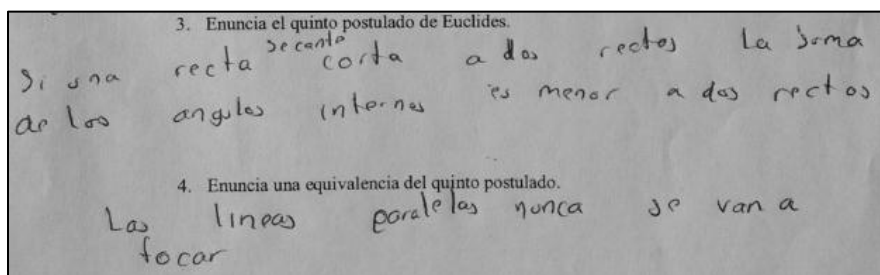 3. Enuncia el quinto postulado de Euclides.
Si una recta secante corta a dos rectas La suma
de los angulos internos es menor a dos rectos
4. Enuncia una equivalencia del quinto postulado.
Las lineas paralelas nunca se van a
tocar